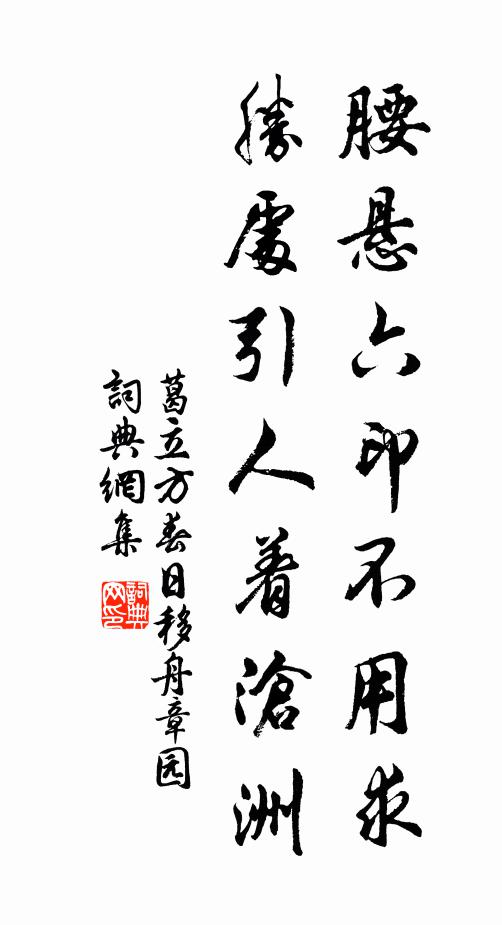 腰悬六印不用求
胜处引人着沧洲
葛立方春日移舟章园
词典网集
词典网印